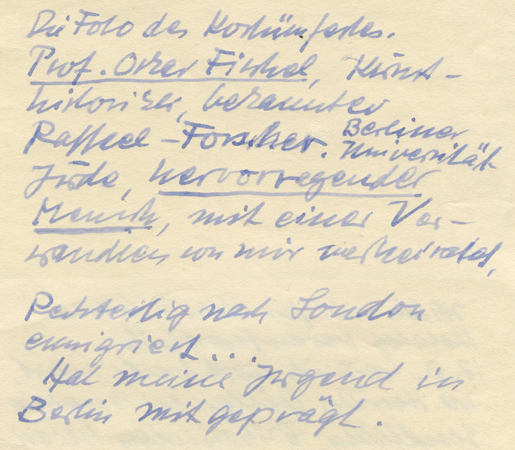 Die Foto des Kostümfestes.
Prof. Oskar Fischel, Kunst-
historiker, bekannter
Raffael-Forscher. Berliner
Universität.
Jude, hervorragender
Mensch, mit einer Ver-
wandten von mir verheiratet,
Rechtzeitig nach London
emigriert...
Hat meine Jugend in
Berlin mitgeprägt.